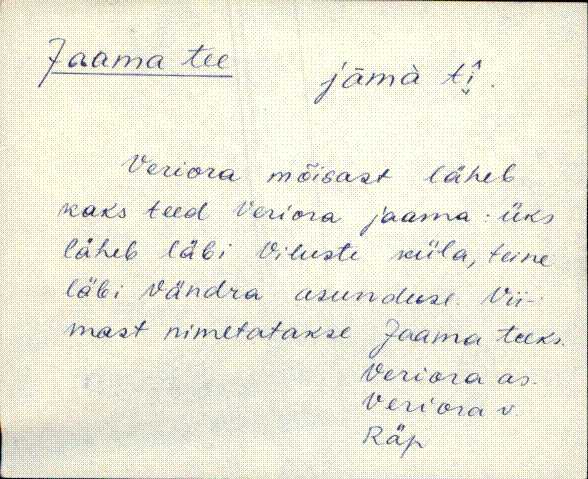 Jaama tee
jāmà tî̬.
Veriora mõisast läheb
kaks teed Veriora jaama: üks
läheb läbi Viluste küla, teine
läbi Vändra asunduse. Vii-
mast nimetatakse Jaama teeks.
Veriora as.
Veriora v
Räp